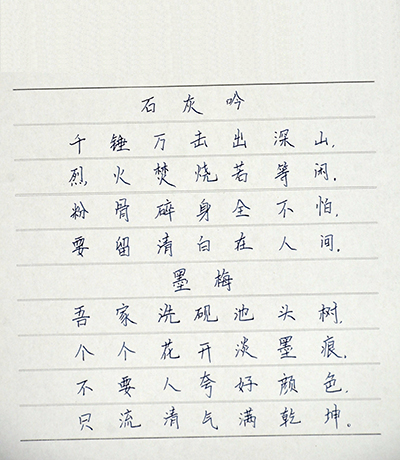 石灰吟
千锤万击出深山,
烈火焚烧若等闲,
粉骨碎身全不怕,
要留清白在人间.
墨梅
吾家洗砚池头树,
个个花开淡墨痕.
不要人夸好颜色,
只流清气满乾坤。